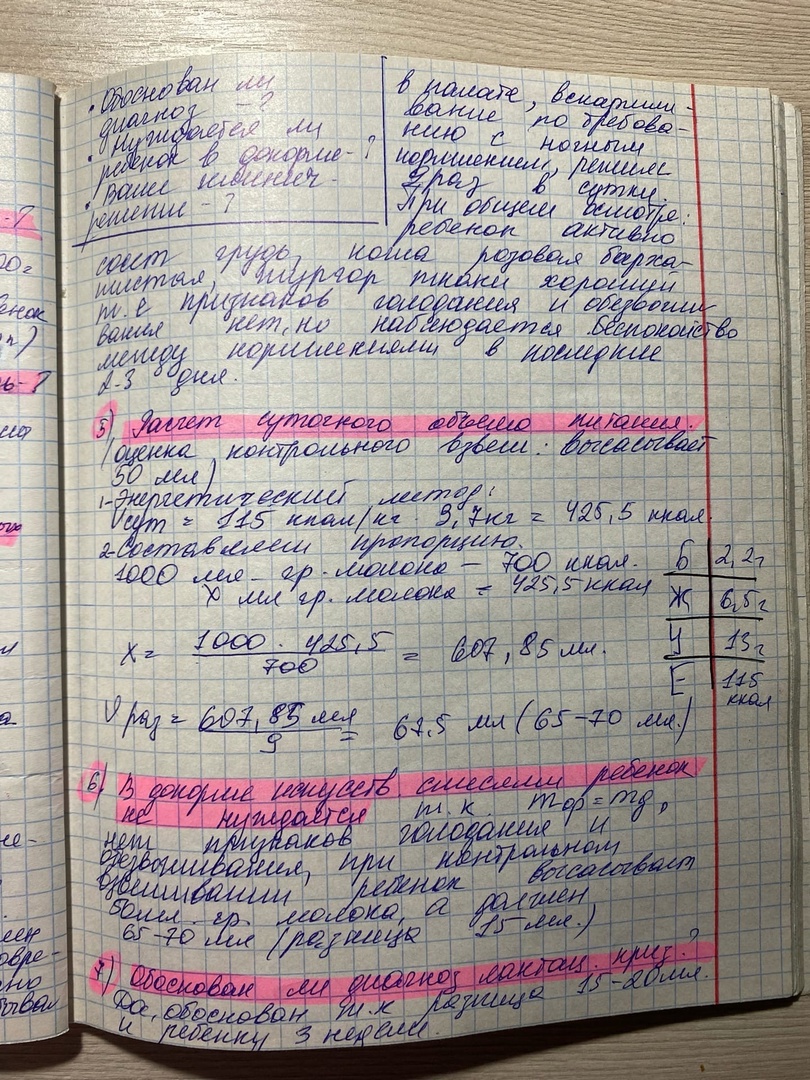 • Обоснован ли
диагноз - ?
• Нуждается ли
ребенок в докорме - ?
• Ваше клинич
решение - ?
в палате, вскармли-
вание по требова-
нию с ночным
кормлением, режим
9 раз в сутки.
При общем осмотре:
ребенок активно
сосет грудь, кожа розовая барха-
тистая, тургор ткани хороший
т. е признаков голодания и обезвожи
вания нет, но наблюдается беспокойство
между кормлениями в последние
2-3 дня.
5) Расчет суточного объема питания.
(оценка контрольного взвеш: высасывает
50 мл)
1-Энергетический метод:
Vсут = 115 ккал/кг · 3,7кг = 425,5 ккал.
2-Составляем пропорцию.
1000 мл - гр. молока - 700 ккал.
X мл гр. молока = 425,5 ккал
Б 2,2г
Ж 6,5г
У 13г
Е 115
ккал
X = 1000 · 425,5
700
= 607,85 мл.
V раз = 607,85 мл
9
= 67,5 мл (65-70 мл.)
6) В докорме искусств смесями ребенок
не нуждается т. к mф = mд,
нет признаков голодания и
обезвоживания, при контрольном
взвешивании ребенок высасывает
50мл. гр. молока, а должен
65-70 мл (разница 15 мл.)
7) Обоснован ли диагноз лактац. криз?
Да, обоснован т. к разница 15-20мл.
и ребенку 3 недели.